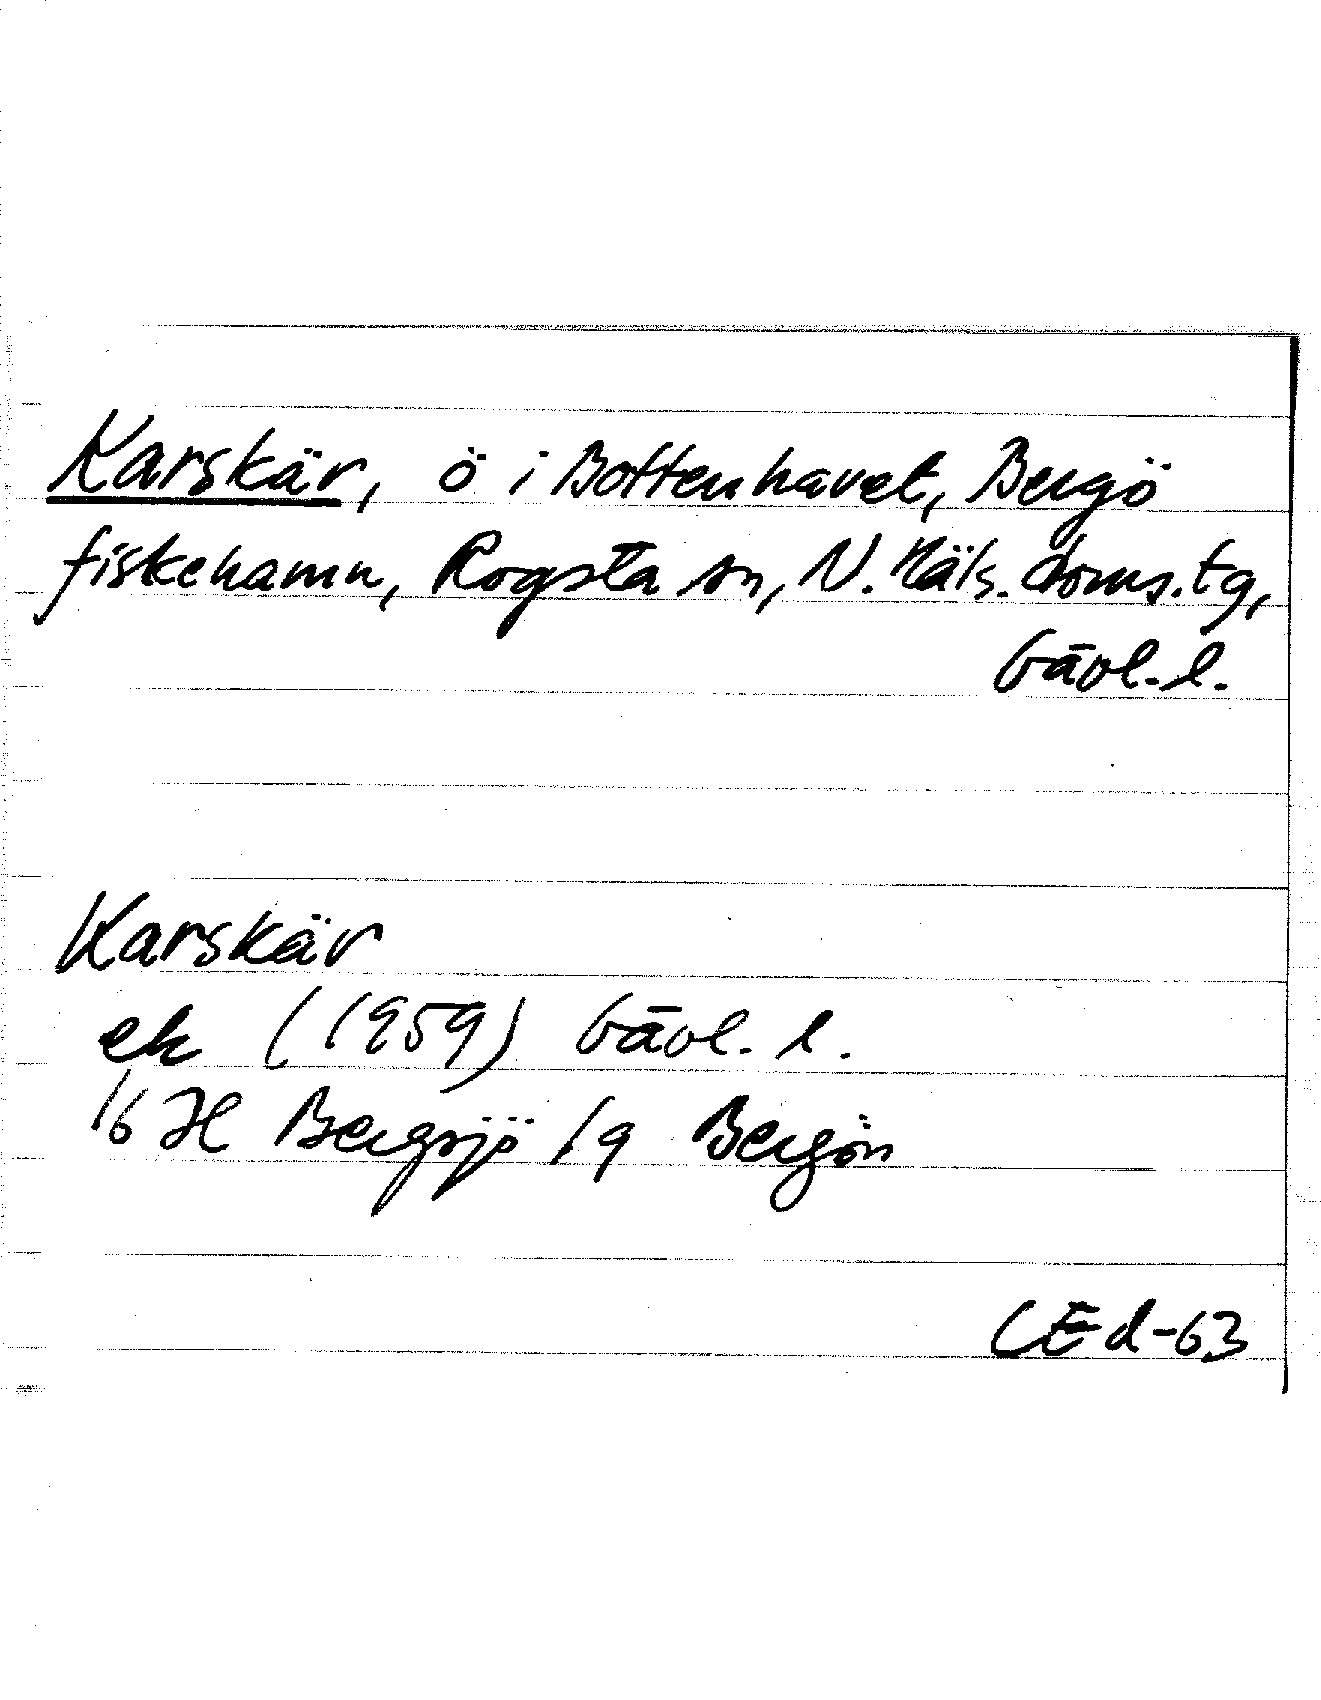 Karskär, ö i Bottenhavet, Bergö
fiskehamn, Rogsta sn, N. Häls. doms. tg,
Gävl. l.
Karskär
ek (1959) Gävl. l.
16 H Bergsjö /g Bergön
CEd-63